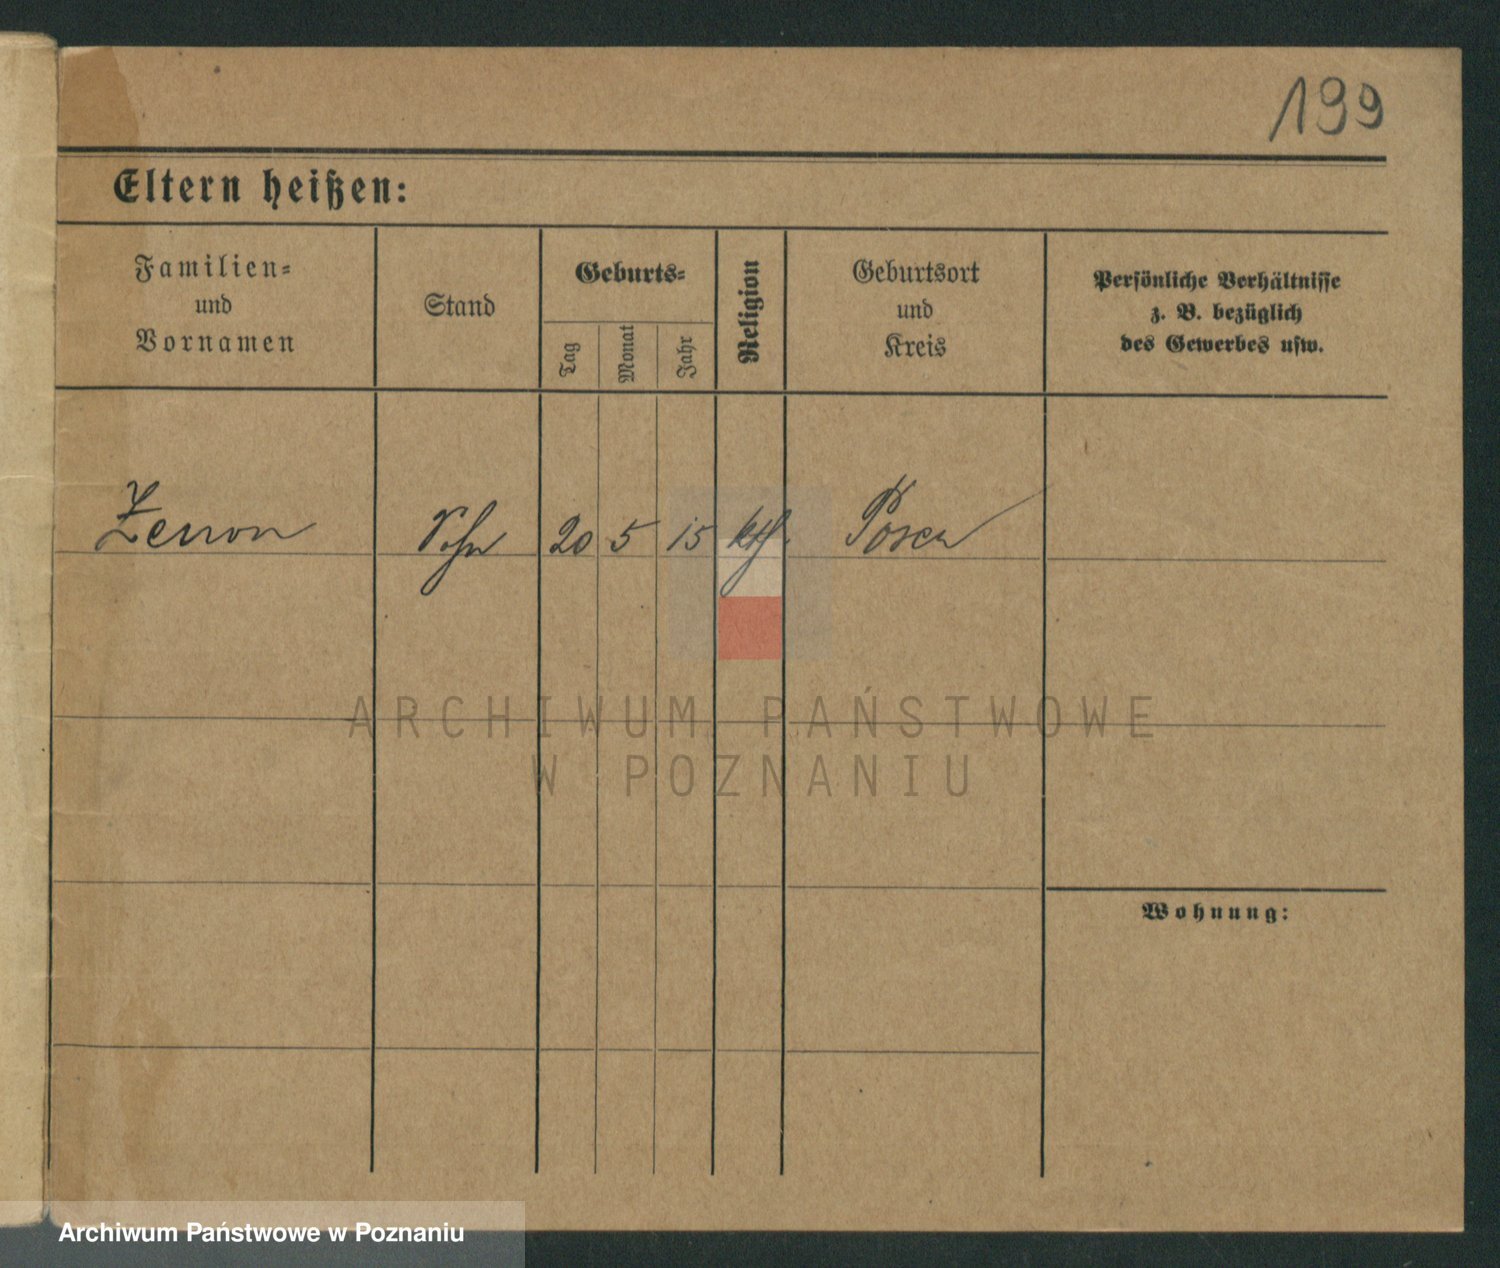 199
Eltern heißen:
Familien-
und
Vornamen
Stand
Geburts-
Tag
Monat
Jahr
Religion
Geburtsort
und
Kreis
Persönliche Verhältnisse
z. B. bezüglich
des Gewerbes usw.
Zenon Sohn 20 5 15 kth. Posen
ARCHIWUM PAŃSTWOWE
W POZNANIU
Wohnung:
Archiwum Państwowe w Poznaniu